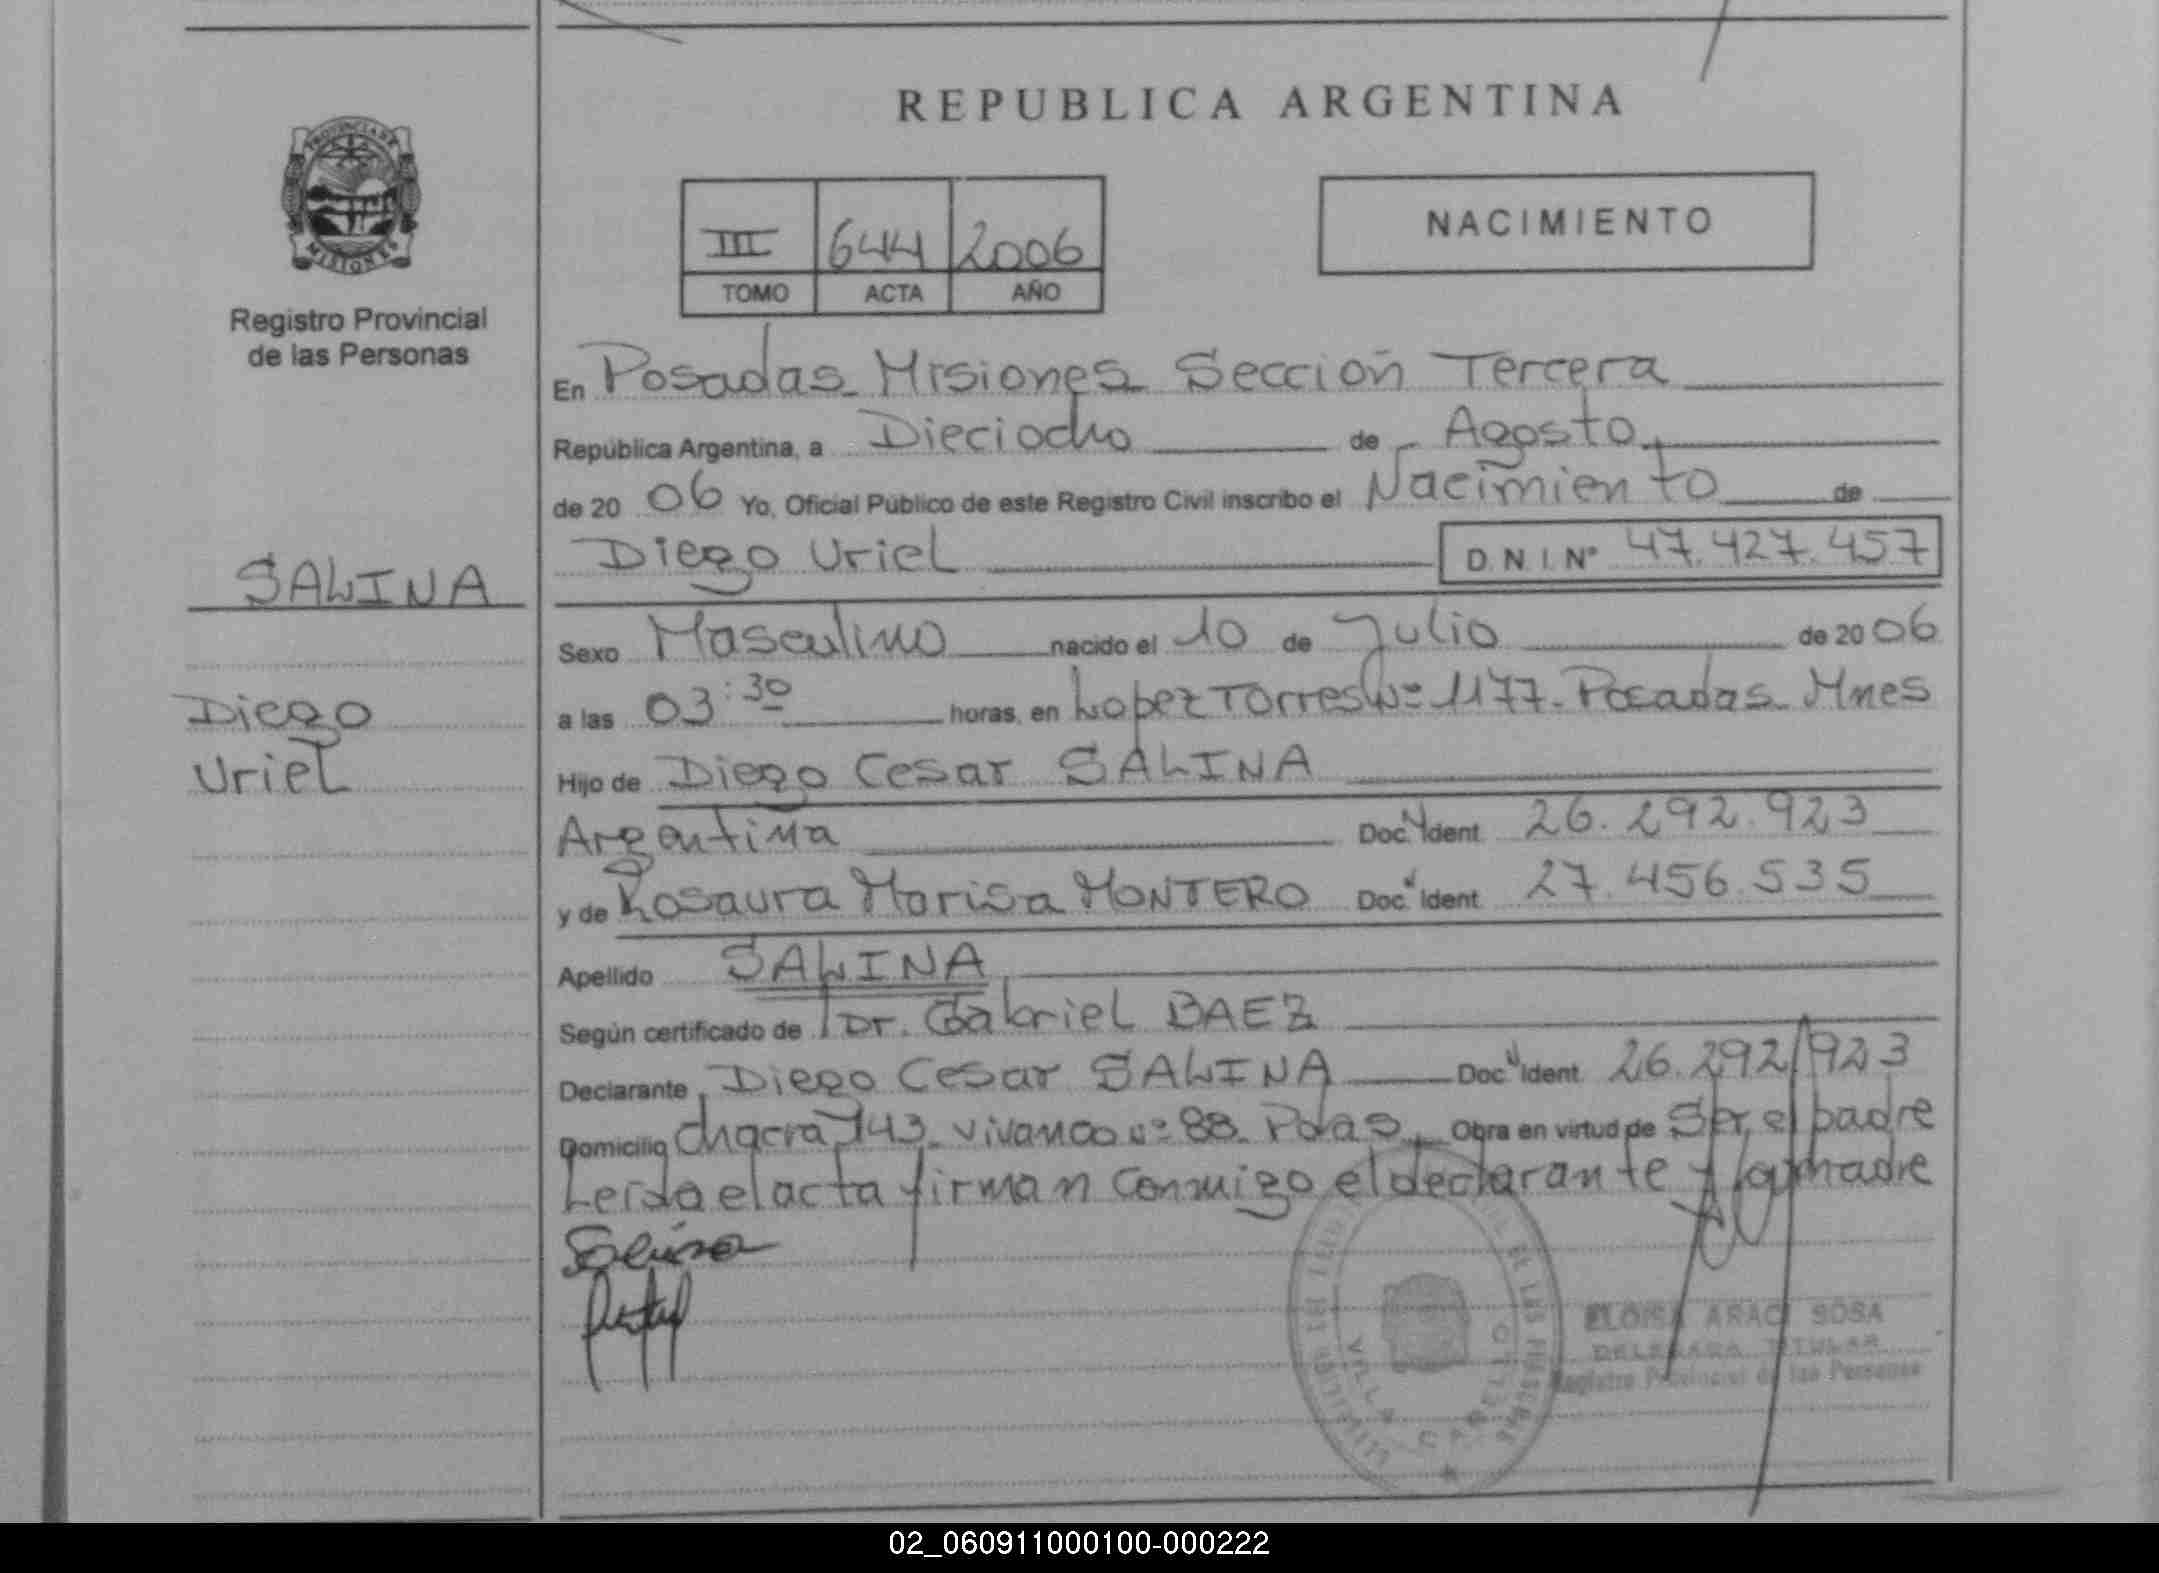 REPUBLICA ARGENTINA
PROVINCIA DE
MISIONES
Registro Provincial
de las Personas
III 644 2006
TOMO ACTA AÑO
NACIMIENTO
En Posadas Misiones Sección Tercera
República Argentina, a Dieciocho de Agosto
de 20 06 Yo, Oficial Público de este Registro Civil inscribo el Nacimiento de
SALINA
Diego Uriel D.N.I. Nº 47.427.457
Sexo Masculino nacido el 10 de Julio de 20 06
Diego
Uriel
a las 03:30 horas, en Lopez Torres Nº 1177 - Posadas Mnes
Hijo de Diego Cesar SALINA
Argentina Doc. Ident. 26.292.923
y de Rosaura Marisa MONTERO Doc. Ident. 27.456.535
Apellido SALINA
Según certificado de Dr. Gabriel BAEZ
Declarante Diego Cesar SALINA Doc. Ident. 26.292.923
Domicilio chacra 143 Vivanco nº 88 Pdas Obra en virtud de Ser el padre
Leída el acta firman conmigo el declarante y la madre
Salina
VILLA CABELLO
ELOISA ARACI SOSA
DELEGADA TITULAR
Registro Provincial de las Personas
02_060911000100-000222